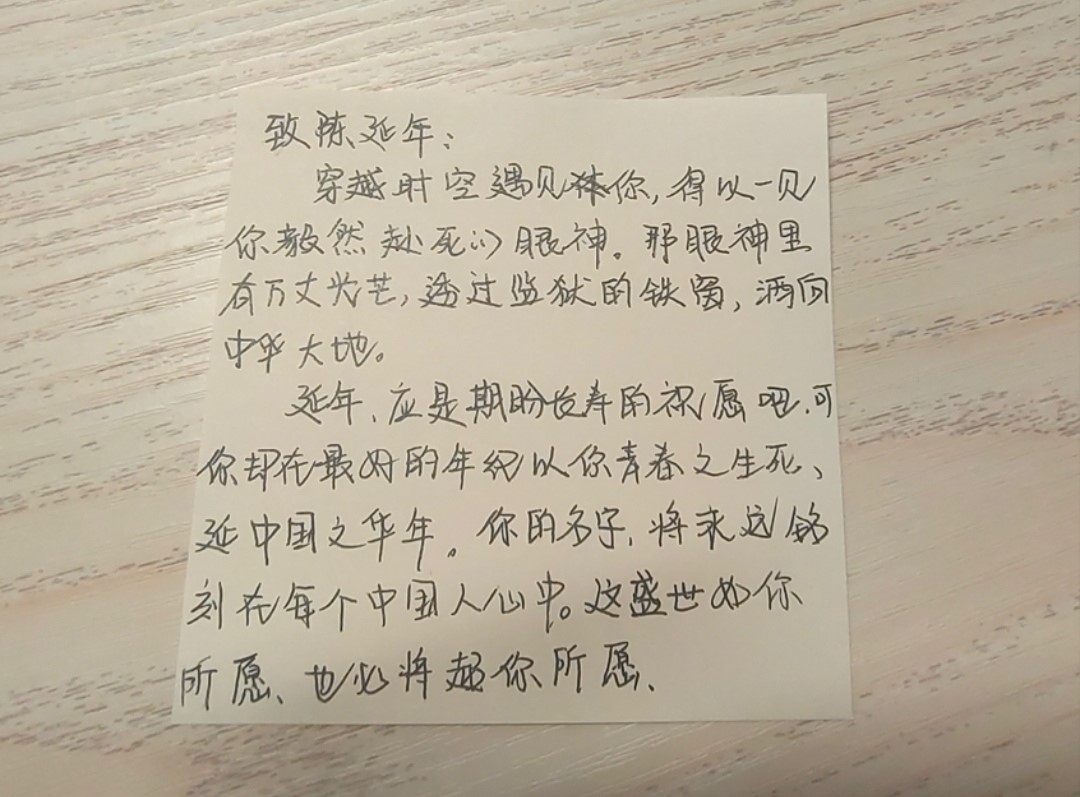 致陈延年：
穿越时空遇见你，得以一见
你毅然赴死的眼神。那眼神里
有万丈光芒，透过监狱的铁窗，洒向
中华大地。
延年、应是期盼长寿的祝愿吧、可
你却在最好的年纪以你青春之生死、
延中国之华年。你的名字，将永远铭
刻在每个中国人心中。这盛世如你
所愿、也必将超你所愿、